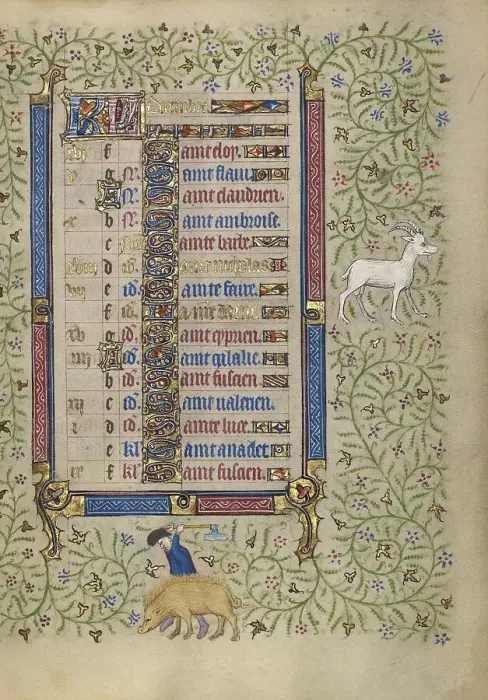 KL Decembre
f Saint eloy.
g N. Saint flaui
A N. Saint claudien.
b N. Saint ambroise.
c Sainte barbe.
d id. Saint nicholas
e id. Sainte faire.
f id.
g id. Saint cyprien.
A id. Saint eulalie.
b id. Saint fuscien.
c id. Saint ualerien.
d id. Sainte luce.
e kl Saint anaclet
f kl Saint fuscien.